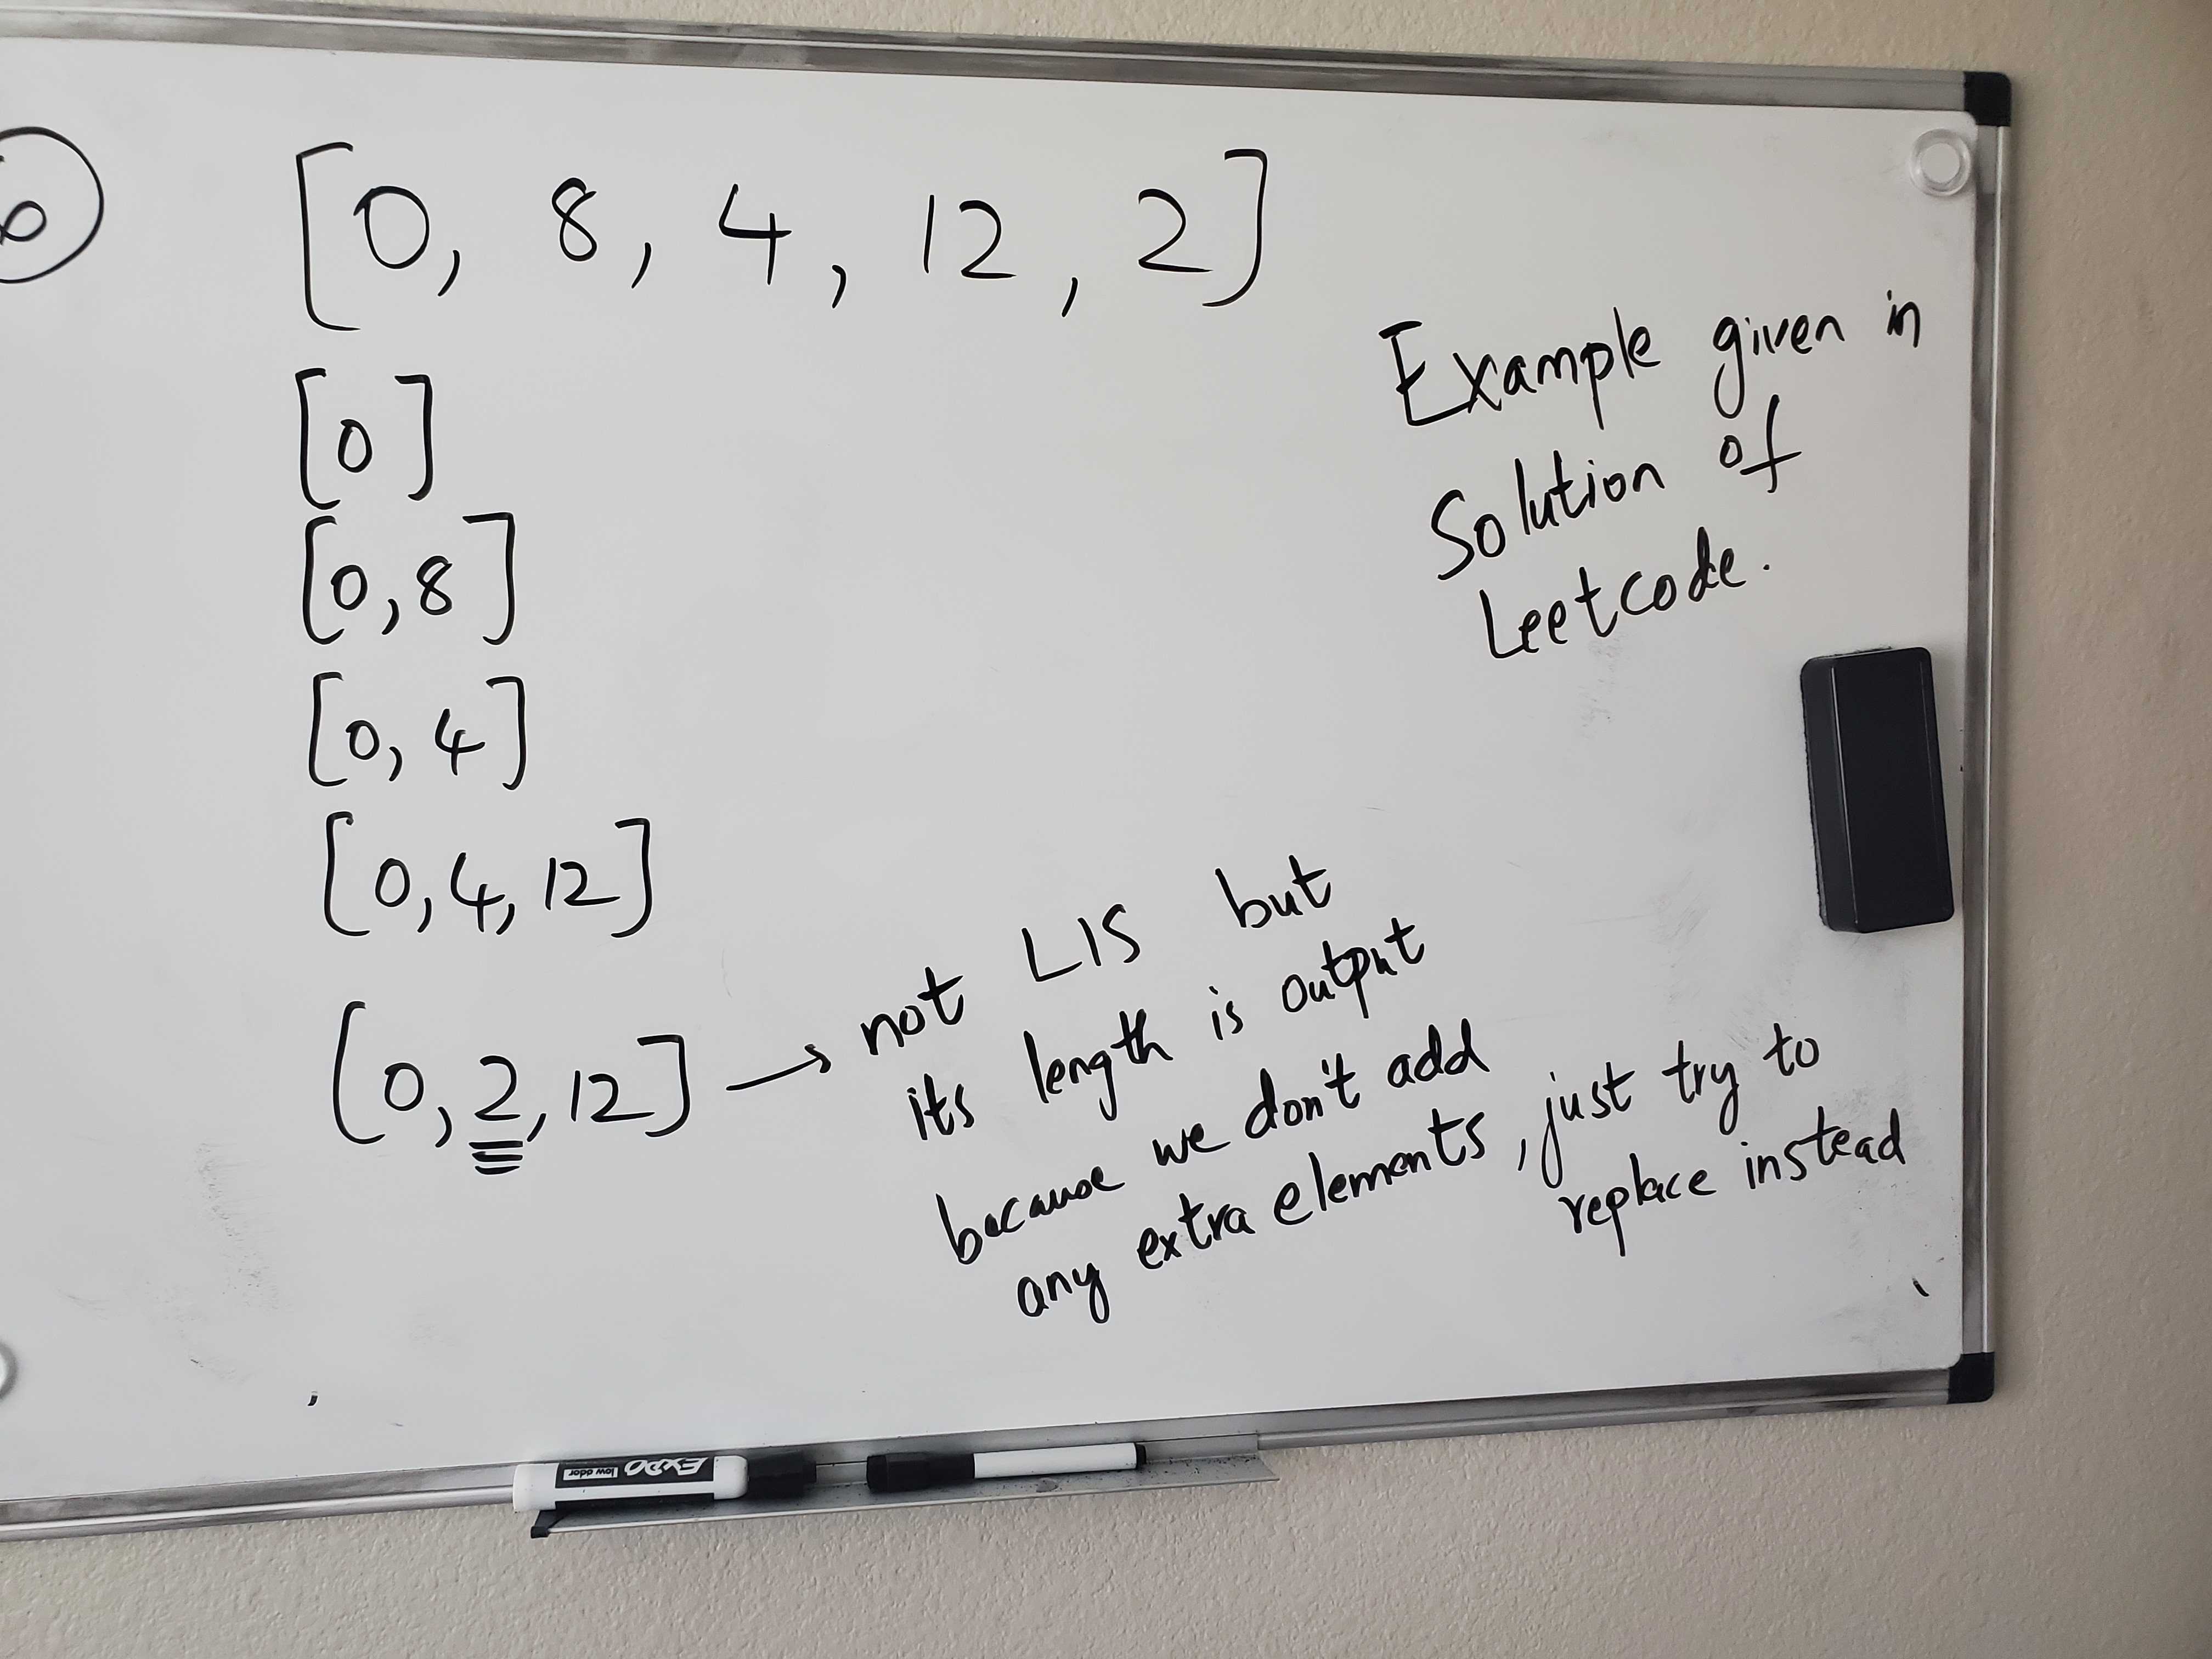 6
[0, 8, 4, 12, 2]
Example given in
Solution of
Leetcode.
[0]
[0,8]
[0, 4]
[0,4, 12]
[0, 2, 12] → not LIS but
its length is output
because we don't add
any extra elements, just try to
replace instead
EXPO
low odor